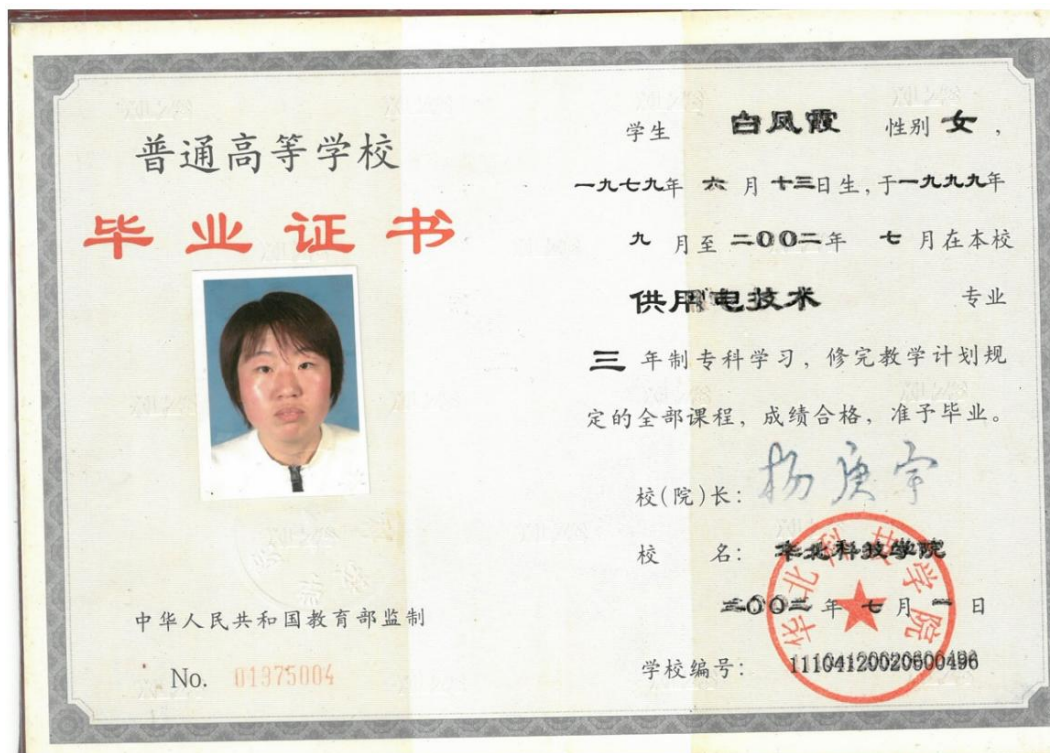 普通高等学校
毕业证书
中华人民共和国教育部监制
No. 01375004
学生 白凤霞 性别 女，
一九七九年 六 月 十三日生，于一九九九年
九 月至 二00二年 七 月在本校
供用电技术 专业
三 年制专科学习，修完教学计划规
定的全部课程，成绩合格，准予毕业。
校(院)长： 杨庚宇
校 名： 华北科技学院
二00二 年 七 月 一 日
学校编号： 11104120020600496
华北科技学院